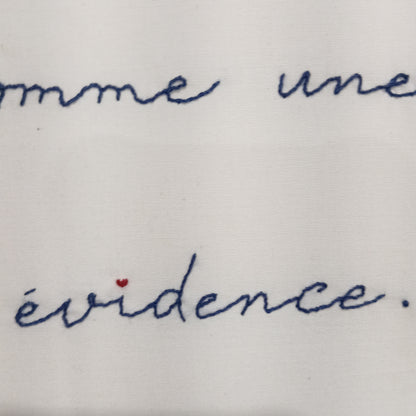 omme une
évidence.